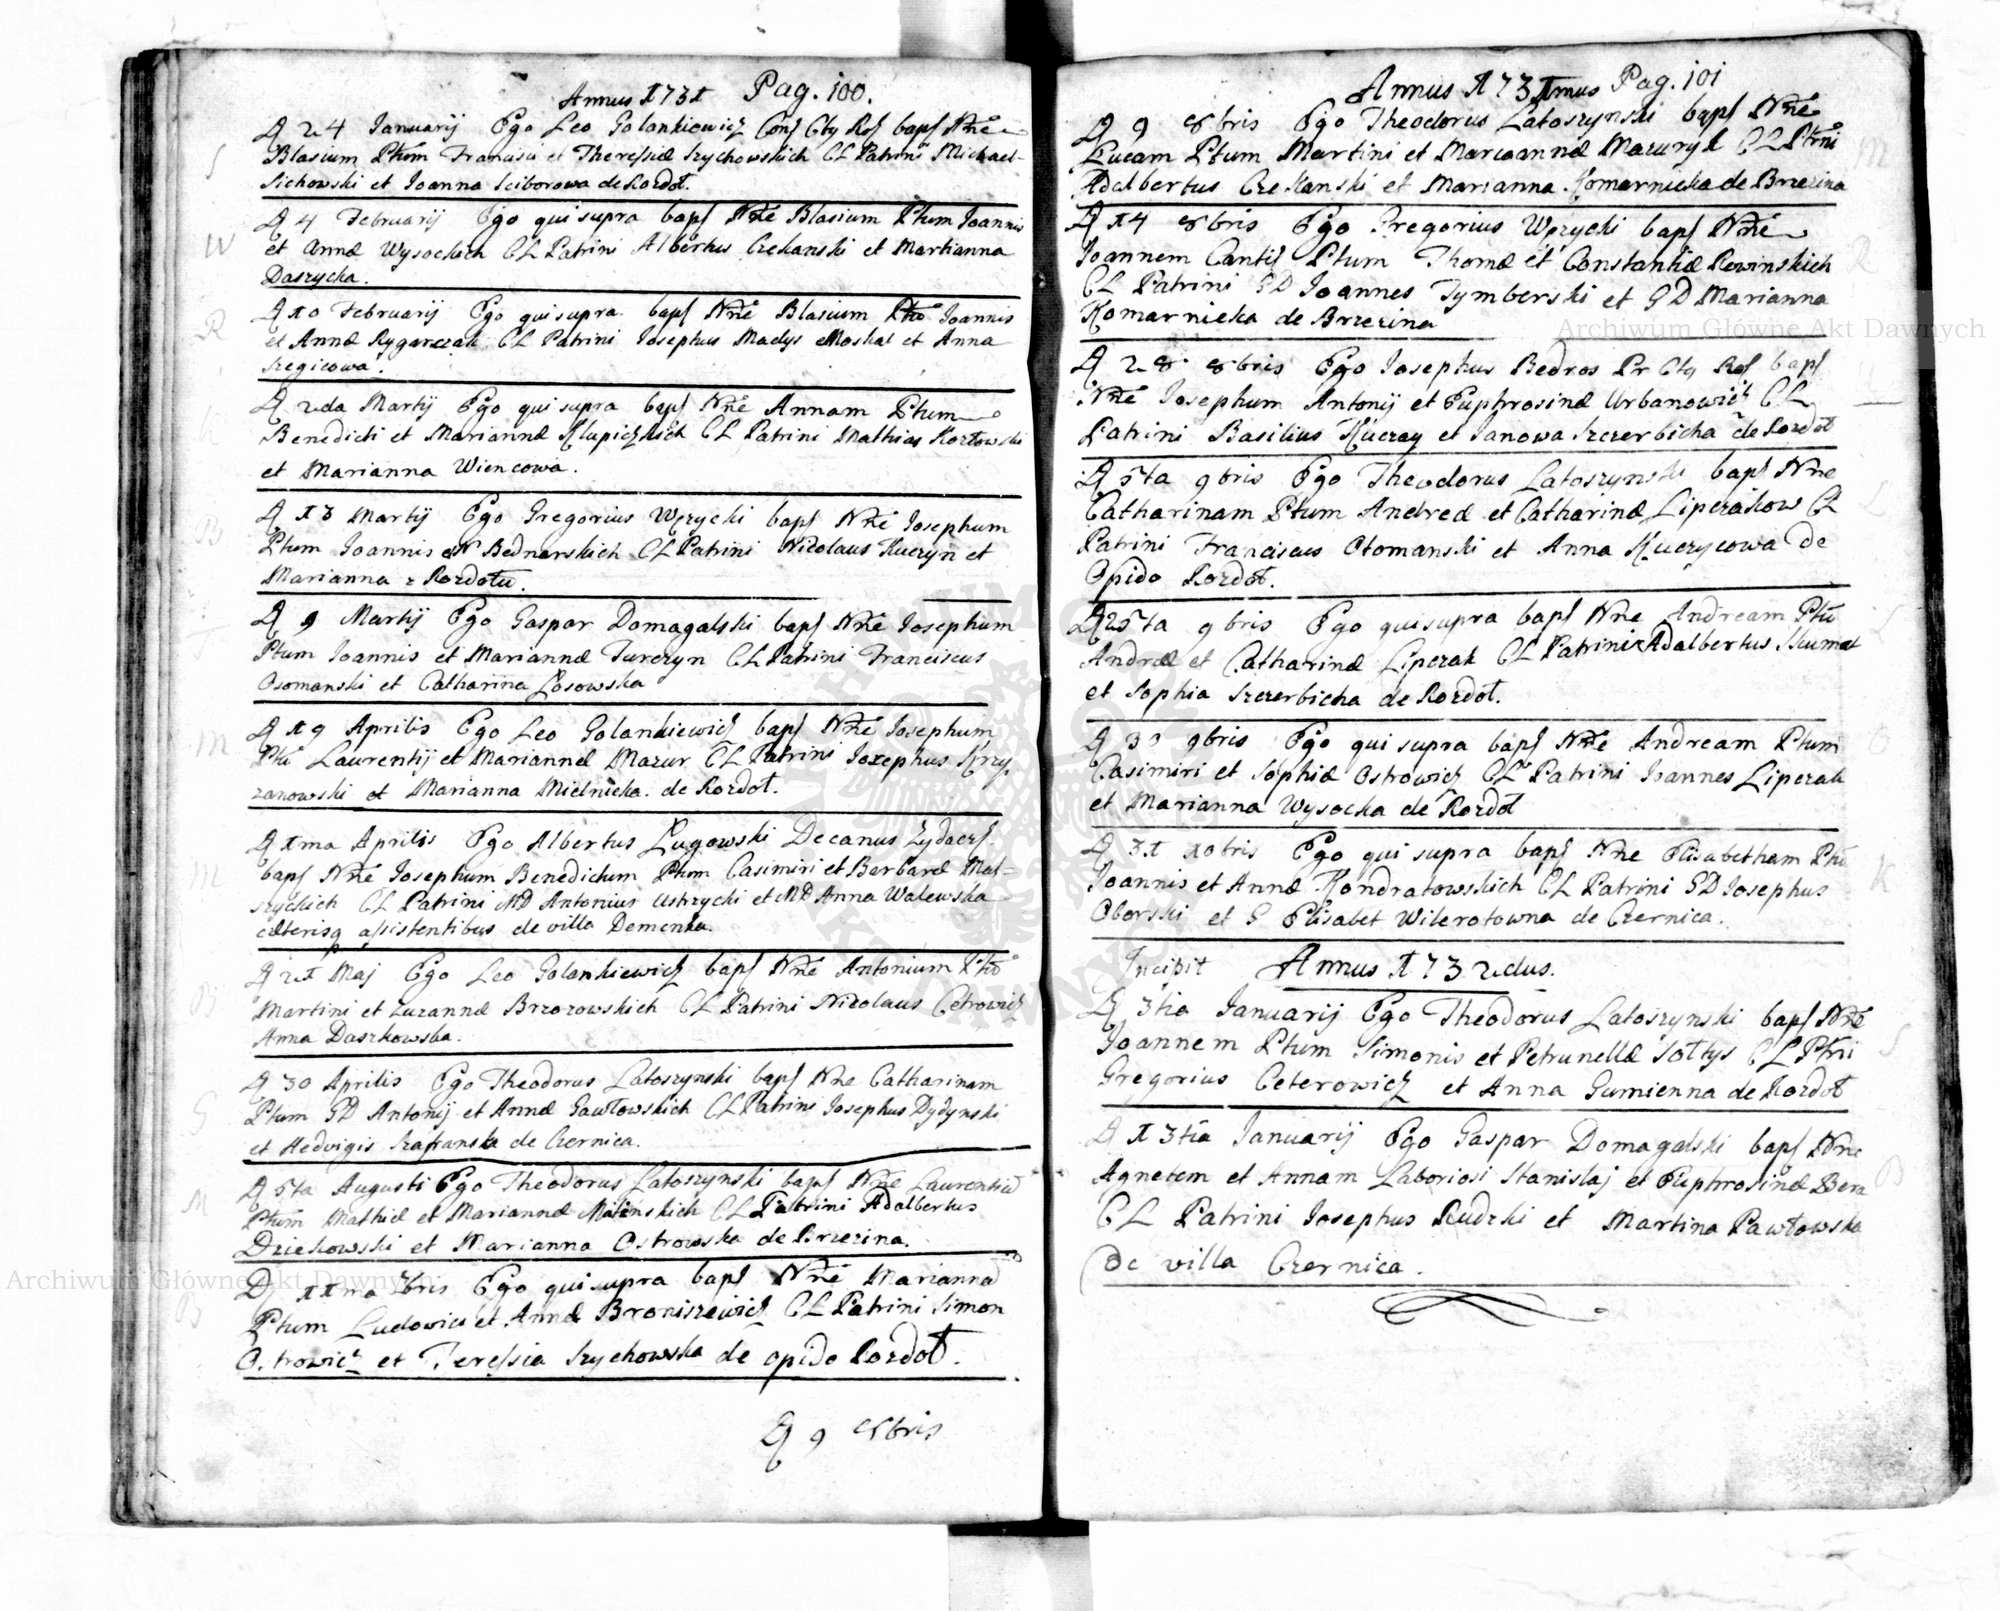 Annus 1731 Pag. 100.
D 24 Januarij Ego Leo Golankiewicz Conf Ctq Rof bapf Nñe
Blasium Ptum Francisci et Theressiæ Szychowskich CL Patrini Michael
Sichowski et Joanna Sciborowa de Rozdoł.
S
D 4 Februarij Ego qui supra bapf Nñe Blasium Ptum Joannis
et Annæ Wysockich CL Patrini Albertus Czekanski et Martianna
Daszycka.
W
D 10 Februarij Ego qui supra bapf Nñe Blasium Ptū Joannis
et Annæ Rygarczak CL Patrini Josephus Madys Moskal et Anna
Szegicowa.
R
D 2da Martij Ego qui supra bapf Nñe Annam Ptum
Benedicti et Mariannæ Klupiczkich CL Patrini Mathias Kozłowski
et Marianna Wiencowa.
K
D 13 Martij Ego Gregorius Wezycki bapf Nñe Josephum
Ptum Joannis et N Bednarskich CL Patrini Nicolaus Kuczyn et
Marianna z Rozdołu.
B
D 9 Martij Ego Gaspar Domagalski bapf Nñe Josephum
Ptum Joannis et Mariannæ Turczyn CL Patrini Franciscus
Osomanski et Catharina Łosowska
D 19 Aprilis Ego Leo Golankiewicz bapf Nñe Josephum
Ptū Laurentij et Mariannæ Mazur CL Patrini Jozephus Krzy
zanowski et Marianna Mielnicka de Rozdoł.
M
D 1ma Aprilis Ego Albertus Ługowski Decanus Zydacz
bapf Nñe Josephum Benedictum Ptum Casimiri et Barbaræ Mal-
szyckich CL Patrini MD Antonius Ustrzycki et MD Anna Walewska
cæterisq assistentibus de villa Demenka.
M
D 21 Maj Ego Leo Golankiewicz bapf Nñe Antonium Ptū
Martini et Zuzannæ Brzozowskich CL Patrini Nicolaus Cetrowicz
Anna Daszkowska.
B
D 30 Aprilis Ego Theodorus Latoszynski bapf Nñe Catharinam
Ptum GD Antonij et Annæ Gawłowskich CL Patrini Josephus Dydynski
et Hedvigis Szafranska de Czernica.
G
D 5ta Augusti Ego Theodorus Latoszynski bapf Nñe Laurentiū
Ptum Mathiæ et Mariannæ Milinskich CL Patrini Adalbertus
Dziekowski et Marianna Ostrowska de Brzezina.
M
D 11ma Xbris Ego qui supra bapf Nñe Mariannā
Ptum Ludowici et Annæ Broniszewicz CL Patrini Simon
Ostrowicz et Teressia Szychowska de opido Rozdoł.
B
D 9 8bris
Annus 1731mus Pag. 101
D 9 8bris Ego Theodorus Latoszynski bapf Nñe
Lucam Ptum Martini et Marioannæ Mazuryk CL Ptrni
Adalbertus Czekanski et Marianna Komarnicka de Brzezina
M
D 14 8bris Ego Gregorius Wezycki bapf Nñe
Joannem Cantij Ptum Thomæ et Constantiæ Rewinskich
CL Patrini GD Joannes Tymberski et GD Marianna
Komarnicka de Brzezina
R
D 28 8bris Ego Josephus Bedros Pr Ctq Rof bapf
Nñe Josephum Antonij et Euphrosinæ Urbanowicz CL
Patrini Basilius Kuczay et Janowa Szczerbicha de Rozdoł
D 5ta 9bris Ego Theodorus Latoszynski bapf Nñe
Catharinam Ptum Andreæ et Catharinæ Liperakow CL
Patrini Franciscus Otomanski et Anna Kuczycowa de
Opido Rozdoł.
L
D 25ta 9bris Ego qui supra bapf Nñe Andream Ptū
Andræ et Catharinæ Liperak CL Patrini Adalbertus
et Sophia Szczerbicha de Rozdoł.
L
D 30 9bris Ego qui supra bapf Nñe Andream Ptum
Casimiri et Sophiæ Ostrowicz CL Patrini Joannes Liperak
et Marianna Wysocka de Rozdoł
O
D 31 10bris Ego qui supra bapf Nñe Elisabetham Ptū
Joannis et Annæ Kondratowskich CL Patrini GD Josephus
Oborski et G Elisabet Wilerotowna de Czernica.
K
Incipit Annus 1732dus.
D 3tia Januarij Ego Theodorus Latoszynski bapf Nñe
Joannem Ptum Simonis et Petrunellæ Sołtys CL Ptrni
Gregorius Ceterowicz et Anna Gumienna de Rozdoł
S
D 13tia Januarij Ego Gaspar Domagalski bapf Nñe
Agnetem et Annam Laboriosi Stanislaj et Euphrosinæ Bera
CL Patrini Josephus Rudzki et Martina Pawłowska
De villa Czernica.
B
Archiwum Główne Akt Dawnych
Archiwum Główne Akt Dawnych